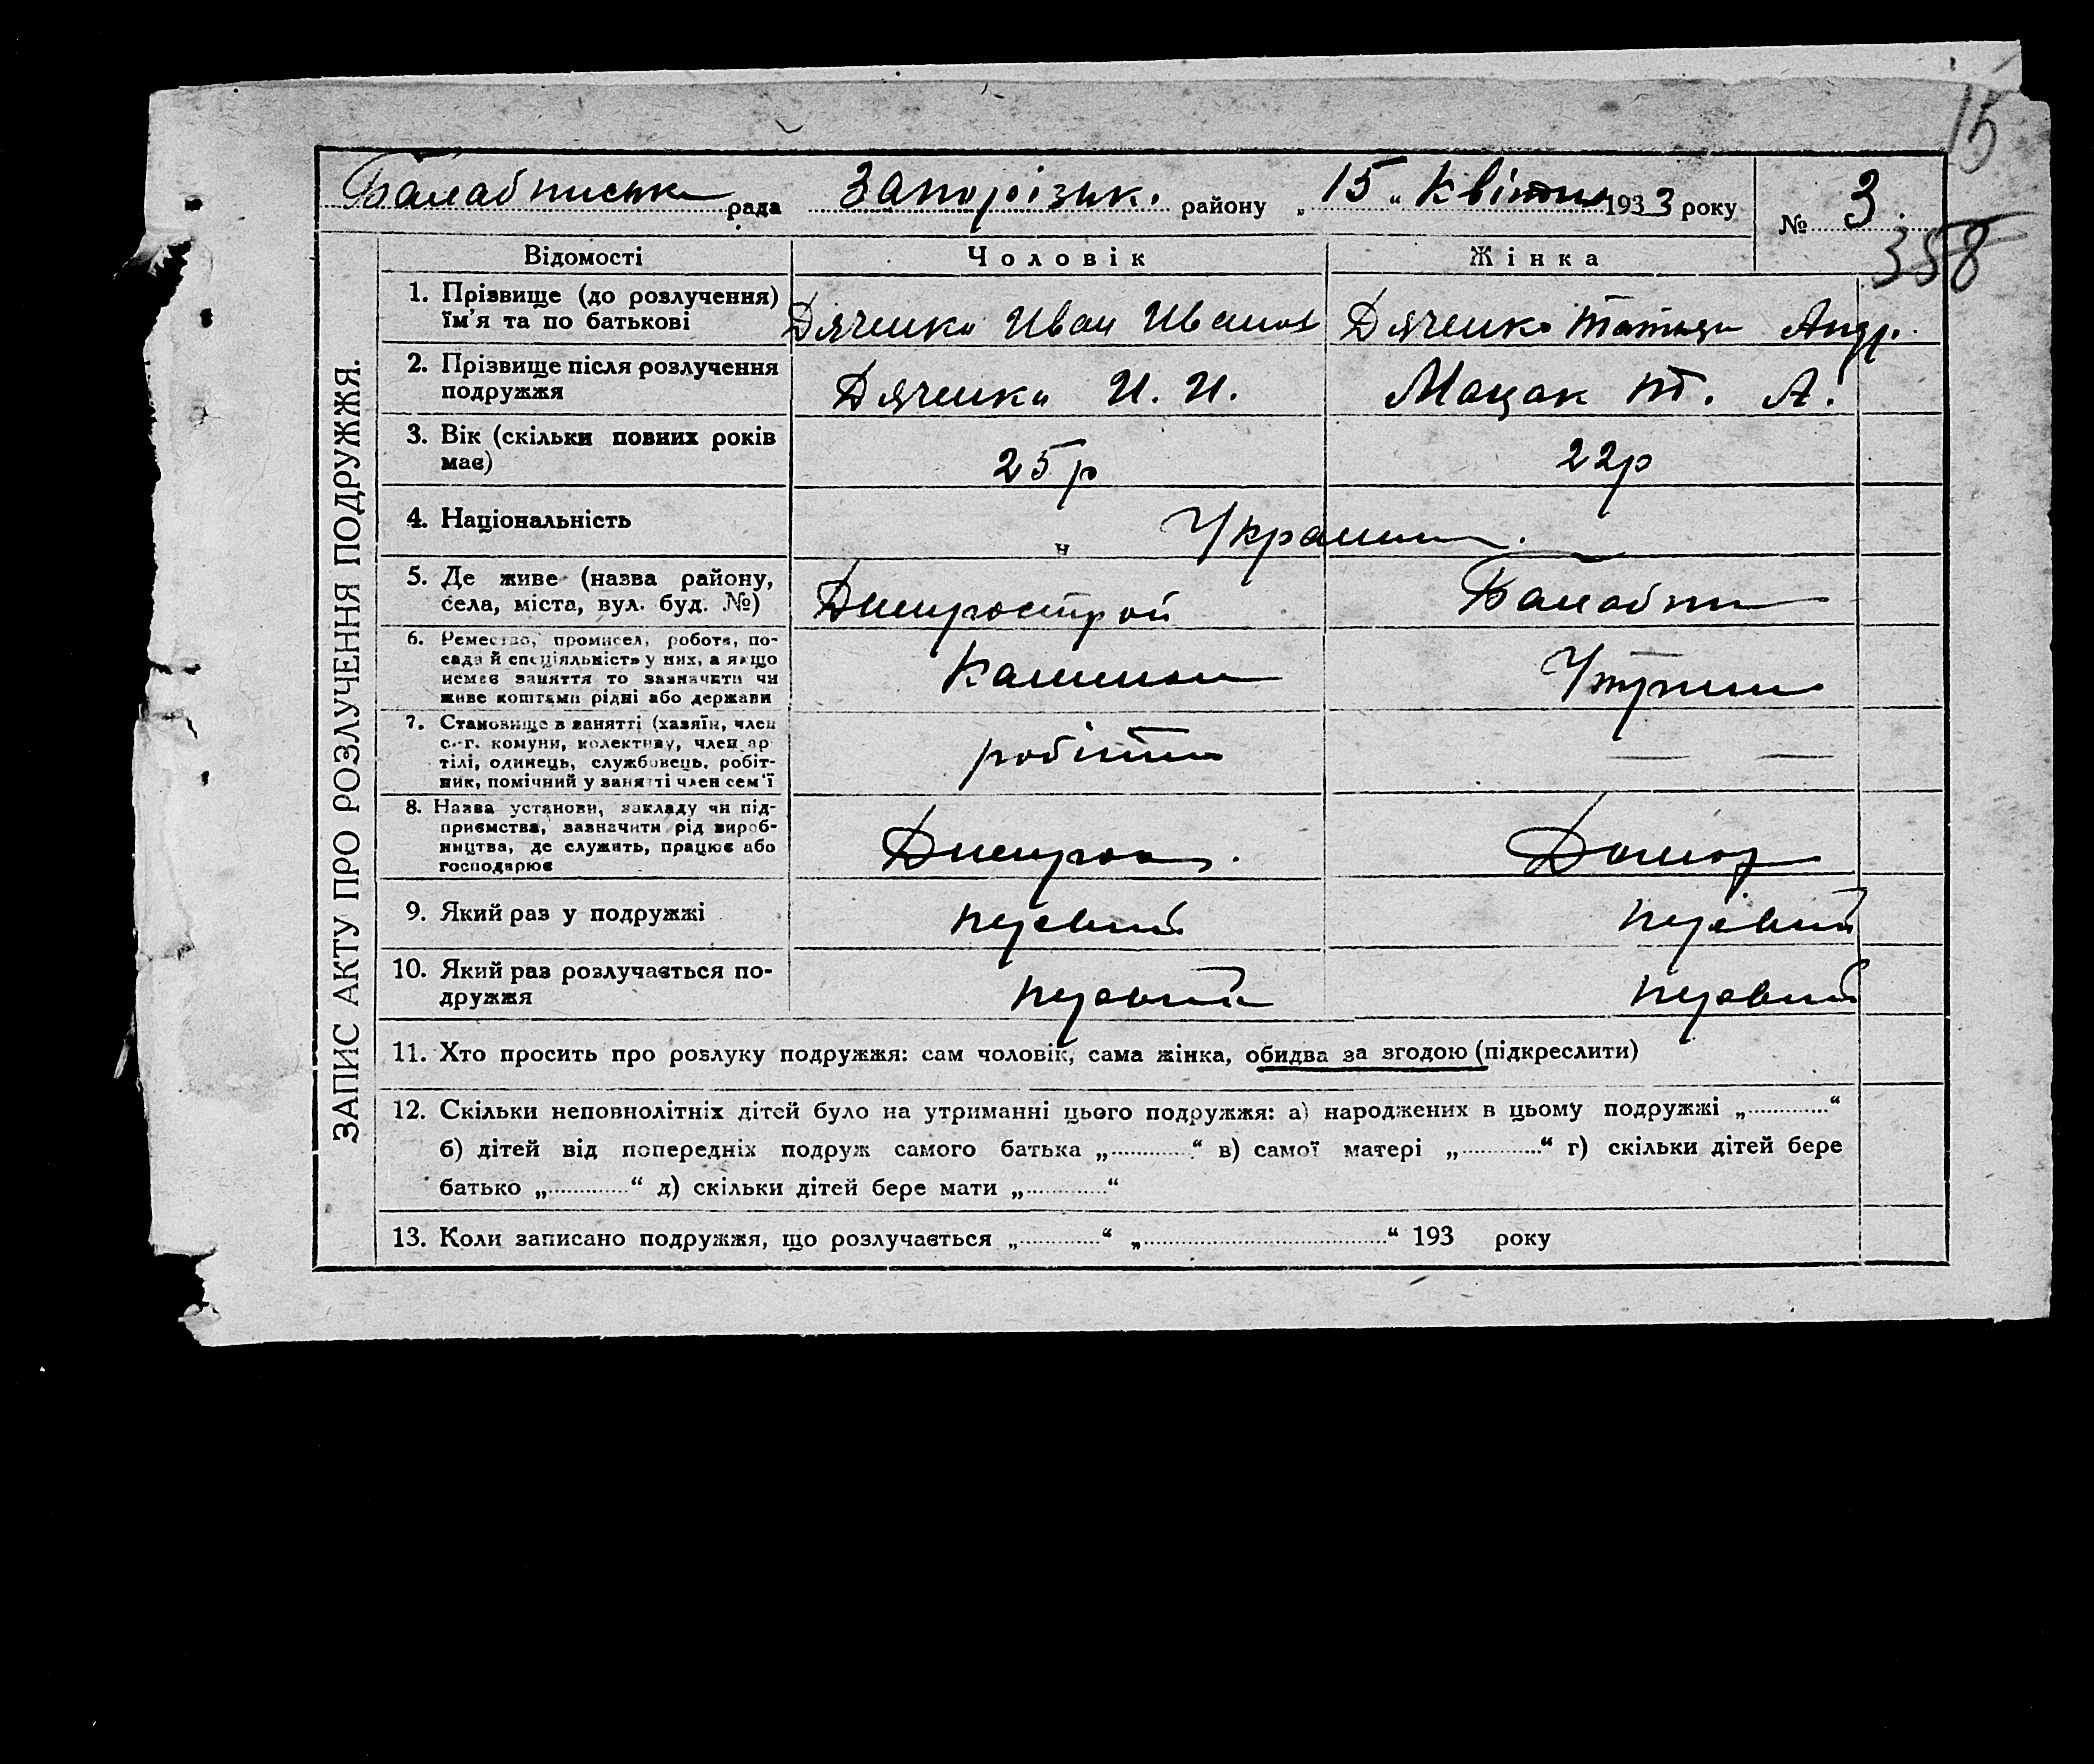 15
Балабинська рада Запорізьк. району „ 15 “ Квітня 1933 року № 3.
358
ЗАПИС АКТУ ПРО РОЗЛУЧЕННЯ ПОДРУЖЖЯ.
Відомості Чоловік Жінка
1. Прізвище (до розлучення) їм'я та по батькові
Дяченко Иван Иванов Дяченко Татьян Андр.
2. Прізвище після розлучення подружжя
Дяченко И. И. Мацак Т. А.
3. Вік (скільки повних років має)
25р 22р
4. Національність
Украин.
5. Де живе (назва району, села, міста, вул. буд. №)
Днепрострой Балабин
6. Ремество, промисел, робота, посада й спеціяльність у них, а якщо немає заняття то зазначити чи живе коштами рідні або держави
7. Становище в занятті (хазяїн, член с.-г. комуни, колективу, член артілі, одинець, службовець, робітник, помічний у занятті член сем'ї
робітн — —
8. Назва установи, закладу чи підприємства, зазначити рід виробництва, де служить, працює або господарює
Домогр
9. Який раз у подружжі
первий первий
10. Який раз розлучається подружжя
первий первий
11. Хто просить про розлуку подружжя: сам чоловік, сама жінка, обидва за згодою (підкреслити)
12. Скільки неповнолітніх дітей було на утриманні цього подружжя: а) народжених в цьому подружжі „ “
б) дітей від попередніх подруж самого батька „ “ в) самої матері „ “ г) скільки дітей бере
батько „ “ д) скільки дітей бере мати „ “
13. Коли записано подружжя, що розлучається „ “ „ “ 193 року